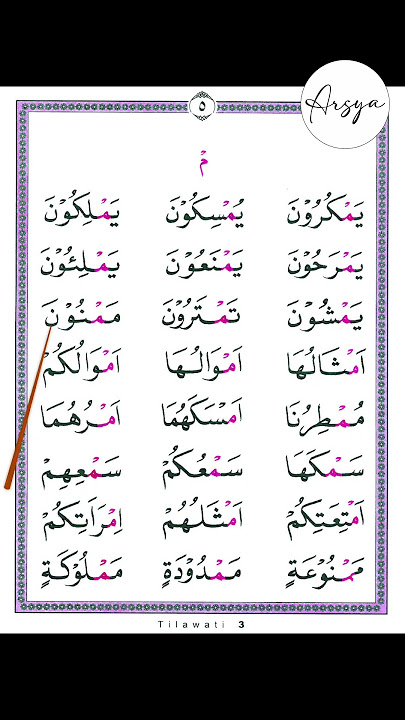 Arsya
٥
مْ
يَمْكُرُوْنَ يُمْسِكُوْنَ يَمْلِكُوْنَ
يَمْرَحُوْنَ يَمْنَعُوْنَ يَمْلِئُوْنَ
يَمْشُوْنَ تَمْتَرُوْنَ مَمْنُوْنَ
اَمْثَالُهَا اَمْوَالُهَا اَمْوَالُكُمْ
مُمْطِرُنَا اَمْسَكَهُمَا اَمْرُهُمَا
سَمْكَهَا سَمْعُكُمْ سَمْعِهِمْ
اَمْتِعَتِكُمْ اَمْثَلُهُمْ اِمْرَاَتِكُمْ
مَمْنُوْعَةٍ مَمْدُوْدَةٍ مَمْلُوْكَةٍ
Tilawati 3